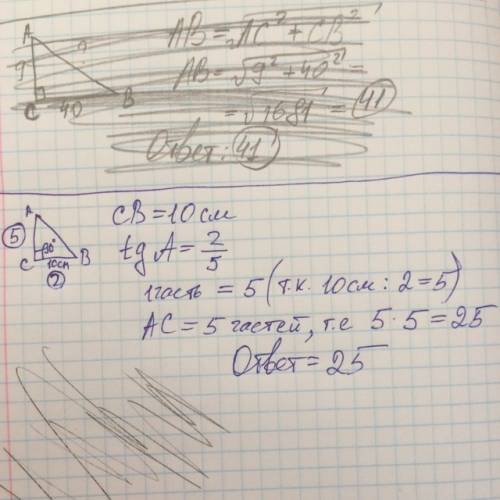 A
9
?
C
40
B
AB = √AC² + CB²
AB = √9² + 40² =
= √1681 = 41
Ответ: 41
A
5
90°
C
10см
B
2
CB = 10 см
tg A = 2/5
1 часть = 5 (т.к. 10 см : 2 = 5)
AC = 5 частей, т.е 5 · 5 = 25
Ответ = 25